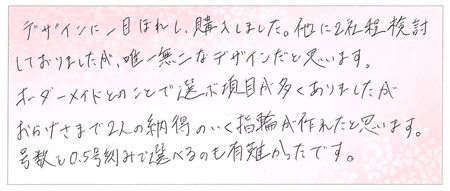 デザインに一目ぼれし、購入しました。他に2社程検討
しておりましたが、唯一無二なデザインだと思います。
オーダーメイドとのことで選ぶ項目が多くありましたが
おかげさまで2人の納得のいく指輪が作れたと思います。
号数も0.5号刻みで選べるのも有難かったです。